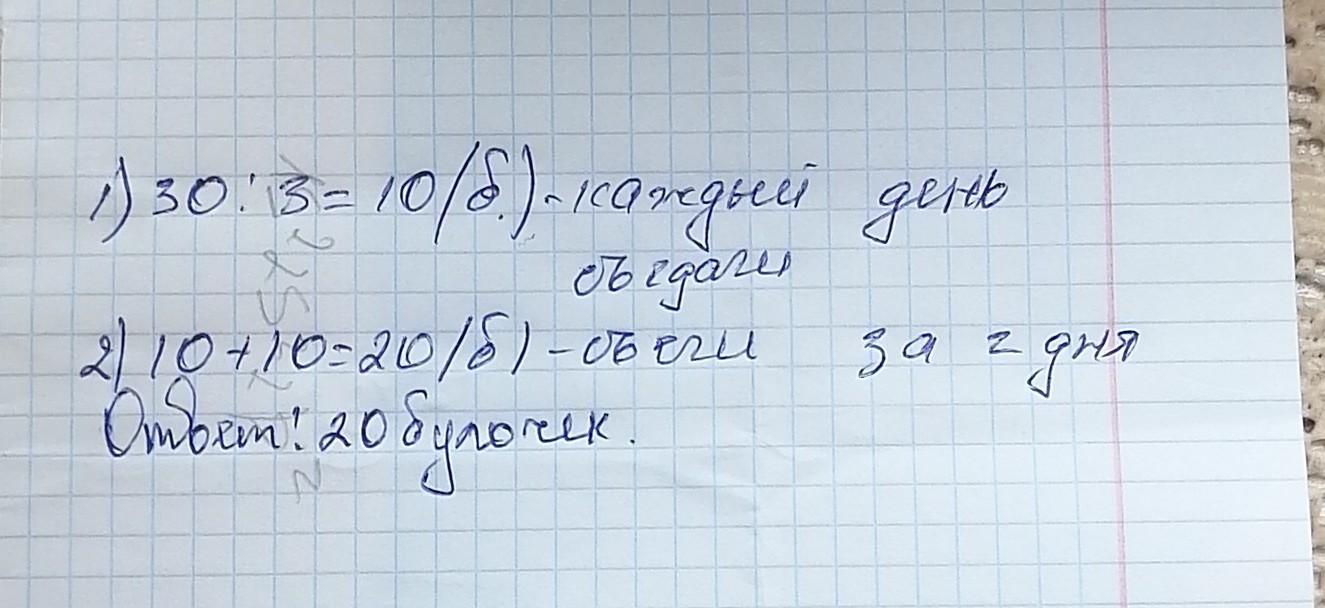 1) 30 : 3 = 10 (б.) - каждый день
объедали
2) 10 + 10 = 20 (б) - объели за 2 дня
Ответ: 20 булочек.